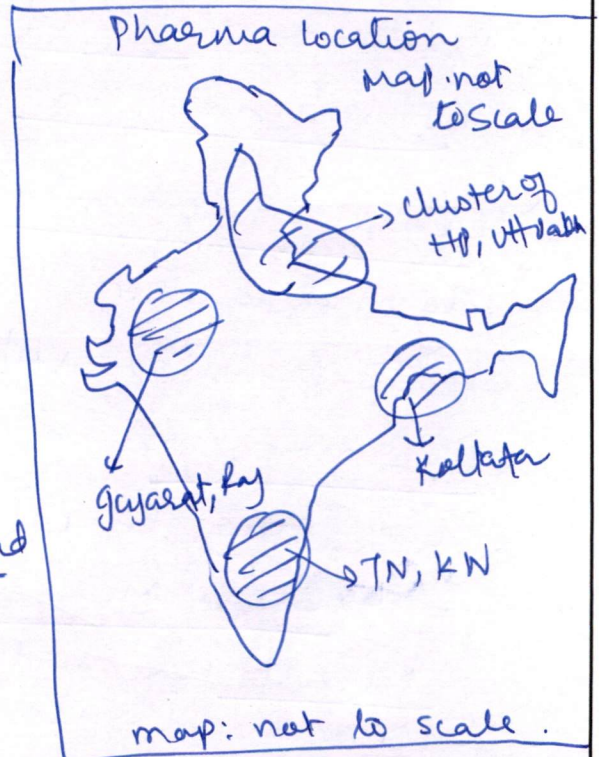 Pharma location
Map.not
to Scale
cluster of
HP, Uttrakh
Gujarat, Raj
Kolkata
TN, KN
map: not to scale.